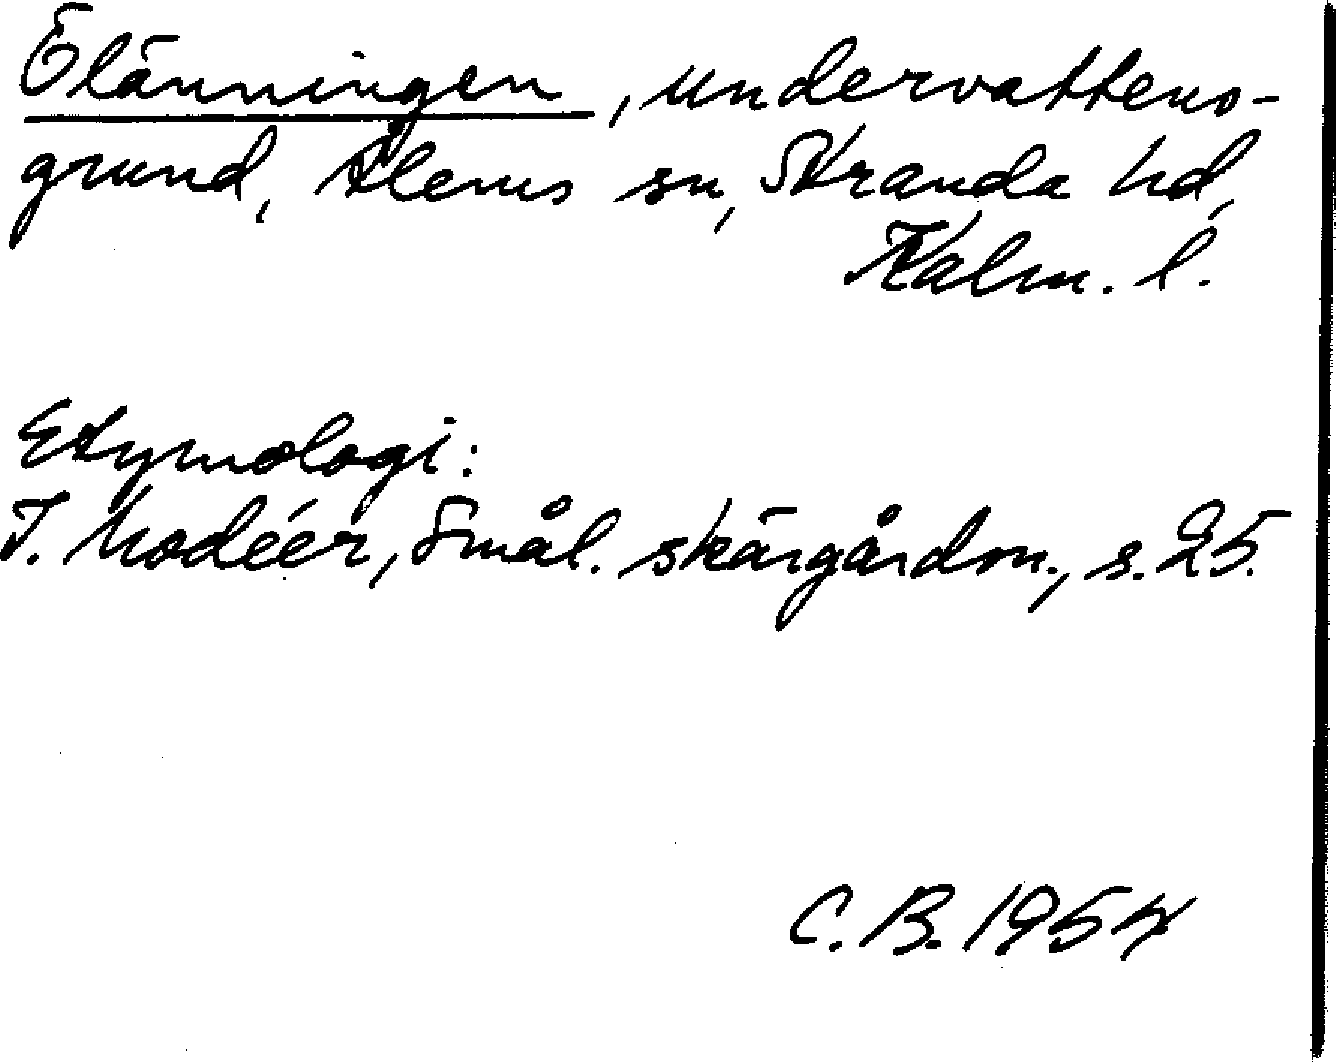 Ölänningen, undervattens-
grund, Ålems sn, Stranda hd,
Kalm. l.
Etymologi:
I. Modéer, Smål. skärgårdsn., s. 25.
C. B. 1954